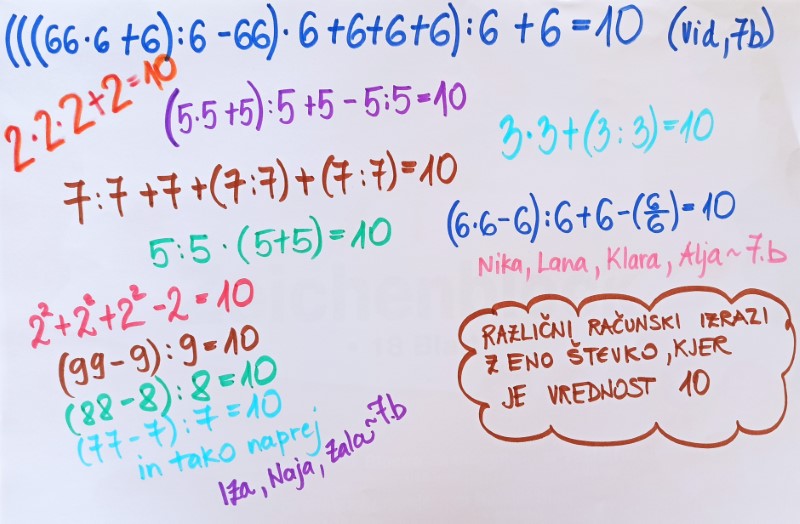 (((66·6+6):6-66)·6+6+6+6):6+6=10 (vid, 7b)
2·2·2+2=10
(5·5+5):5+5-5:5=10
3·3+(3:3)=10
7:7+7+(7:7)+(7:7)=10
(6·6-6):6+6-(6/6)=10
5:5·(5+5)=10
Nika, Lana, Klara, Alja~7.b
2²+2²+2²-2=10
(99-9):9=10
(88-8):8=10
(77-7):7=10
in tako naprej
Iza, Naja, Zala~7.b
RAZLIČNI RAČUNSKI IZRAZI
Z ENO ŠTEVKO, KJER
JE VREDNOST 10